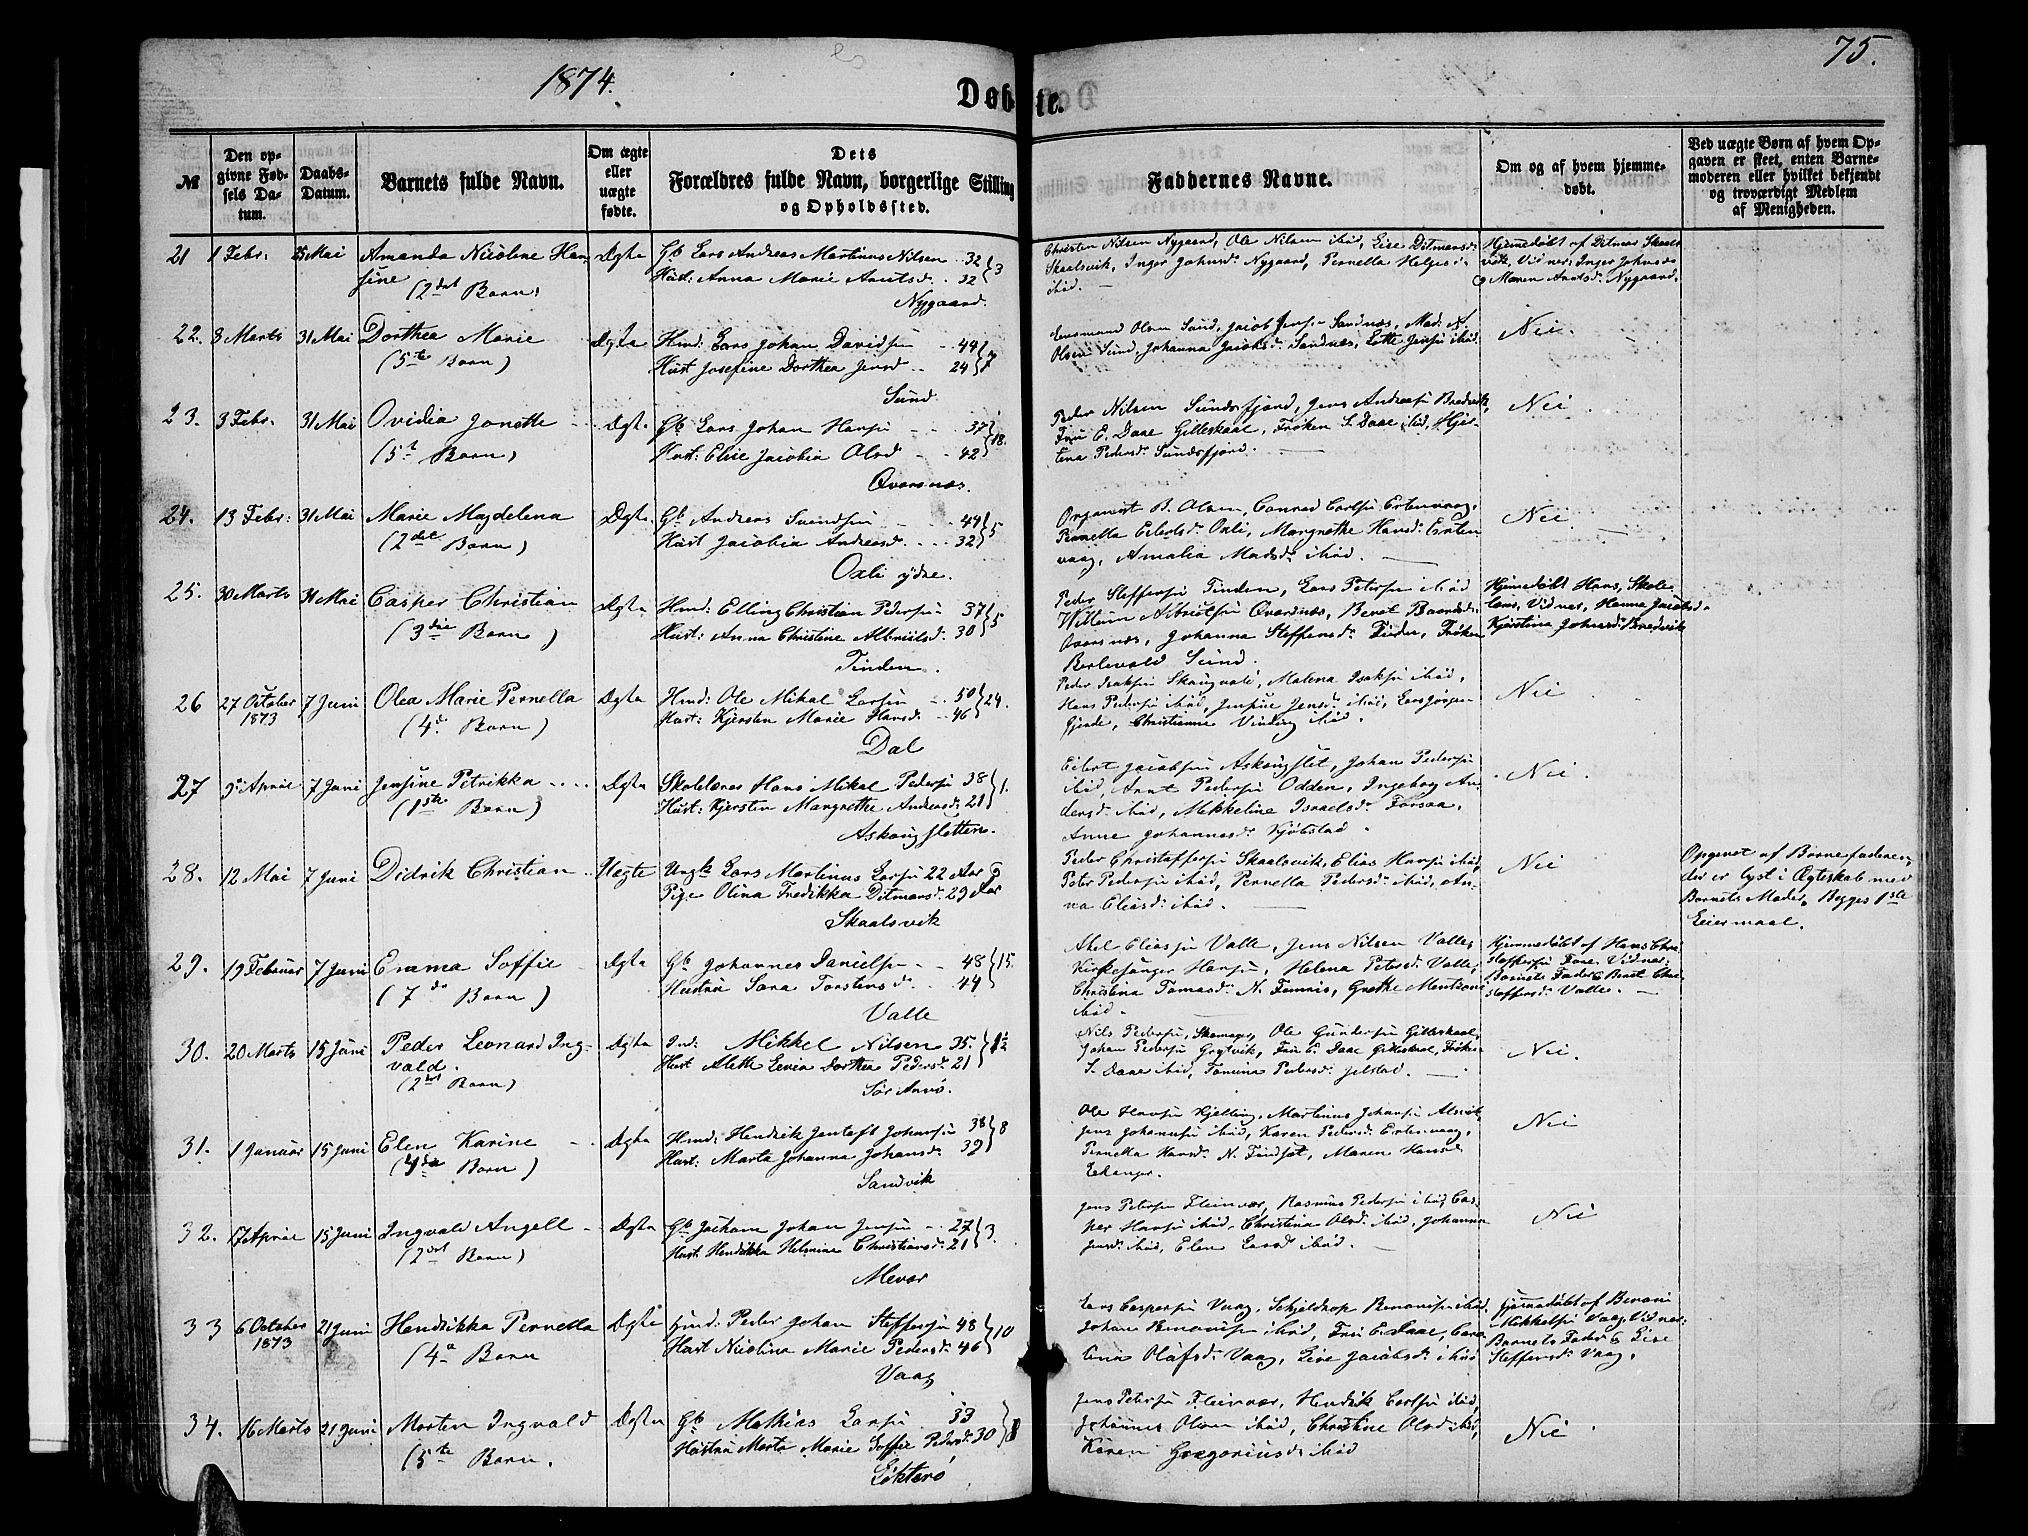 1874.
75.
Døbte.
№
Den opgivne Fødsels Datum.
Daabs-Datum.
Barnets fulde Navn.
Om ægte eller uægte fødte.
Dets Forældres fulde Navn, borgerlige Stilling og Opholdssted.
Faddernes Navne.
Om og af hvem hjemmedøbt.
Ved uægte Børn af hvem Opgaven er skeet, enten Barnemoderen eller hvilket bekjendt og troværdigt Medlem af Menigheden.
21 1 Febr: 25 Mai Amanda Nicoline Hansine
(2det Barn)
Ægte
Gb Lars Andreas Martinus Nilsen 32 } 3
Hust: Anna Marie Arntsd. 32
Nygaard.
Christen Nilsen Nygaard, Ole Nilsen ibid, Lise Ditmarsd:
Skaalsvik, Inger Johnsd: Nygaard, Pernella Helges
ibid.
Hjemedøbt af Ditmar Skaalsvik, Vidner: Inger Johnsd.
Maren Arntsd: Nygaard.
22. 8 Marts 31 Mai Dorthea Marie
(5te Barn)
Ægte
Hmd: Lars Johan Davidsen 44 } 7
Hust Josefine Dorthea Jensd 24
Sund
Olsen Sund, Johanna Jacobsd: Sandnæs, Lette Jensen ibid.
Nei
23. 3 Febr. 31 Mai Ovidia Jonette
(5te Barn)
Ægte
Gb Lars Johan Hansen 37 } 18.
Hust: Elise Jacobia Olsd 42
Qvarsnæs.
Peder Nilsen Sundsfjord, Jens Andreasen Bredvik,
Fru E. Daae Gilleskaal, Frøken S. Daae ibid,
Pedersd: Sundsfjord.
Nei
24. 13 Febr: 31 Mai Marie Magdelena
(2det Barn)
Ægte
Gb Andreas Svendsen 44 } 5
Hust Jacobia Andreasd. 32
Oxli ydre.
Organist B. Olsen, Conrad Carlsen Ertenvaag,
Pernella Eilertsd. Oxli, Margrethe Hansd: Ertenvaag, Amalia Madsd: ibid.
Nei
25. 30 Marts 31 Mai Casper Christian
(3die Barn)
Ægte
Hmd: Elling Christian Pedersen 37 } 5
Hust: Anna Christine Albrigtsd. 30
Tinden.
Peder Steffensen Tinden, Lars Petersen ibid
Qvarsnæs, Johanna Steffensd: Tinden, Frøken
Sund.
Hjemedøbt Hans, Skolelærer, Vidner, Hanna Jacobsd.
Kjerstina Johnsd: Bredvik
26 27 October 1873 7 Juni Olea Marie Pernella
(4de Barn)
Ægte
Hmd: Ole Mikal Larsen 50 } 24.
Hust: Kjersten Marie Hansd. 46
Dal
Peder Isaksen Skaugvold, Malena Isaksen ibid,
Hans Pedersen ibid, Jensine Jensd: ibid, Lars Jørgen
Gjerde, Christianne Vinding ibid.
Nei
27 5 April 7 Juni Jensine Petrikka
(1ste Barn)
Ægte
Skolelærer Hans Mikal Pedersen 38 } 1.
Hust: Kjersten Margrethe Andersd: 28
Askougsletten.
Eilert Jacobsen Askougslet, Johan Pedersen
ibid, Arnt Pedersen Odden, Ingeborg Andersd: ibid, Mekkeline Israelsd: Forsaa,
Anne Johannesd: Kjøbstad.
Nei
28. 12 Mai 7 Juni Didrik Christian
Uægte
Ungk. Lars Martinus Larsen 22 Aar &
Pige Olina Fredikka Ditmarsd: 29 Aar
Skaalsvik
Peder Christoffersen Skaalsvik, Elias Hansen ibid,
Peter Pedersen ibid, Pernella Pedersd: ibid, Anna Eliasd: ibid.
Nei
Opgivet af Barnefaderen,
der er lyst i Ægteskab med
Barnets Moder, Begges 1ste
Leiermaal.
29. 19 Februar 7 Juni Emma Soffie
(7de Barn)
Ægte
Gb Johannes Danielsen 48 } 15.
Hustru Sara Torstensd. 44
Valle
Axel Eliasen Valle, Jens Nilsen Valle,
Kirkesanger Hansen, Helena Petersd: Valle,
Christina Tomasd: N. Femris, Grethe
ibid.
Hjemmedøbt af Hans Christoffersen Fore, Vidner:
Barnets Fader & Berit Christoffersd: Valle.
30. 20 Marts 15 Juni Peder Leonard Ingvald.
(2det Barn)
Ægte
Ind: Mikkel Nilsen 35 } 1½
Hust Alette Livia Dorthea Pedersd. 21
Sør Arnø.
Nils Pedersen, Ole Gundersen Gilleskaal,
Johan Pedersen Grytvik, Fru E. Daae Gilleskaal, Frøken
S. Daae ibid, Tomina Pedersd: Jelstad.
Nei.
31. 1 Januar 15 Juni Elen Karine
(4de Barn)
Ægte
Hmd: Hendrik Jentoft Johnsen 38 } 8
Hust: Marta Johanna Johansd. 39
Sandvik
Ole Hansen Kjelling, Martinus Johansen Alsvik,
Jens Johansen ibid, Karen Pedersd: Ertenvaag,
Pernella Hansd: N. Finsæt, Maren Hansd.
Nei
32. 17 April 15 Juni Ingvald Angell
(2det Barn)
Ægte
Gb Jochum Johan Jensen 27 } 3.
Hust Hendikka Helmine Christiansd. 21
Mevær
Jens Petersen Fleinvær, Rasmus Pedersen ibid, Casper Hansen ibid, Christina Olsd: ibid, Johanna
Jensd: ibid, Elen Larsd ibid.
Nei
33 6 October 1873 21 Juni Hendikka Pernella
(4de Barn
Ægte
Hmd: Peder Johan Steffensen 48 } 10
Hust Nicolina Marie Pedersd. 46
Vaag
Lars Caspersen Vaag, Schjeldrop Benonisen ibid,
Johan Benonisen ibid, Fru E. Daae, Carolina Olafsd: Vaag, Lise Jacobsd: ibid
Hjemedøbt af Benoni
Mikkelsen Vaag, Vidner:
Barnets Fader & Lise
Steffensd: Vaag.
34. 16 Marts 21 Juni Morten Ingvald
(5te Barn.
Ægte
Gb Mathias Larsen 33 } 8
Hustru Marta Marie Soffie Pedersd: 30
Løkterø
Jens Petersen Fleinvær, Hendrik Carlsen ibid,
Johannes Olsen ibid, Christine Olsd: ibid,
Karen Gregoriusd: ibid
Nei